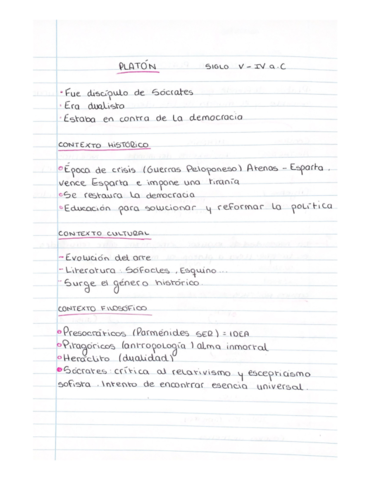 PLATÓN SIGLO V-IV a.C
· Fue discípulo de Sócrates
· Era dualista
· Estaba en contra de la democracia
CONTEXTO HISTÓRICO
• Época de crisis (Guerras Peloponeso) Atenas - Esparta.
vence Esparta e impone una tiranía
• Se restaura la democracia
• Educación para solucionar y reformar la política
CONTEXTO CULTURAL
- Evolución del arte
- Literatura: Sófocles, Esquino...
- Surge el género histórico.
CONTEXTO FILOSÓFICO
• Presocráticos (Parménides SER) = IDEA
• Pitagóricos (antropología) alma inmortal
• Heráclito (dualidad)
• Sócrates: crítica al relativismo y escepticismo
sofista. Intento de encontrar esencia universal.